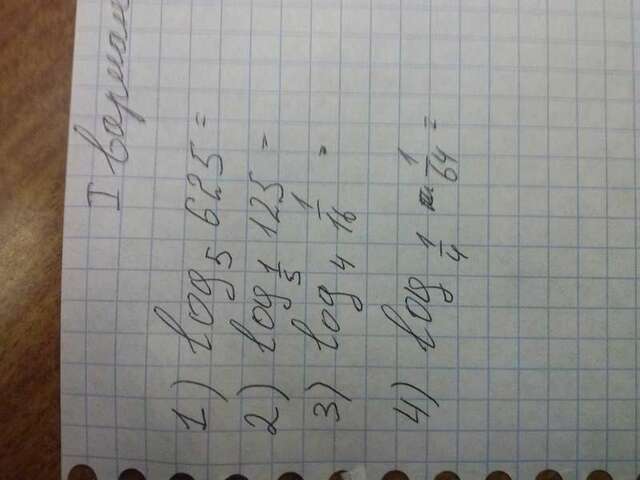 I вариан
1) log₅ 625 =
2) log_{1/5} 125 =
3) log₄ 1/16 =
4) log_{1/4} 1/64 =